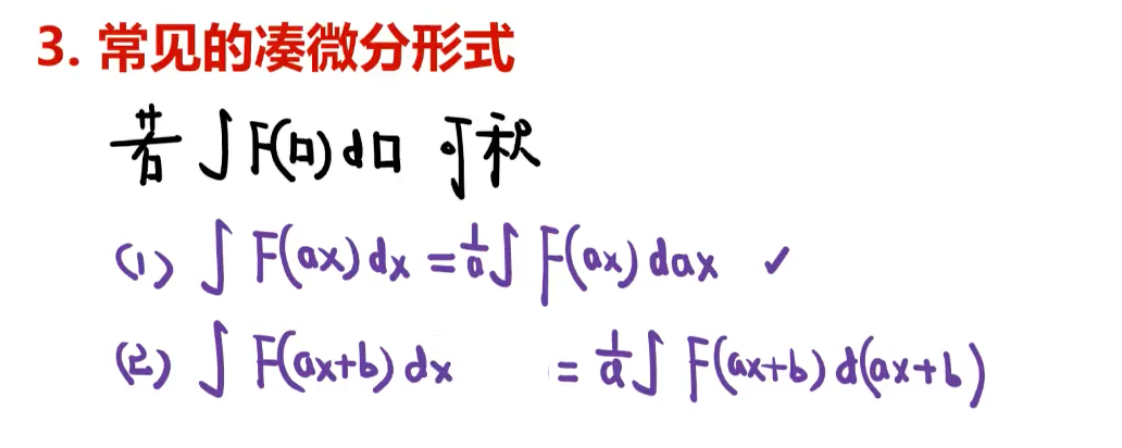 3. 常见的凑微分形式
若 ∫F(口)d口 可积
(1) ∫ F(ax) dx = 1/a ∫ F(ax) dax ✓
(2) ∫ F(ax+b) dx = 1/a ∫ F(ax+b) d(ax+b)